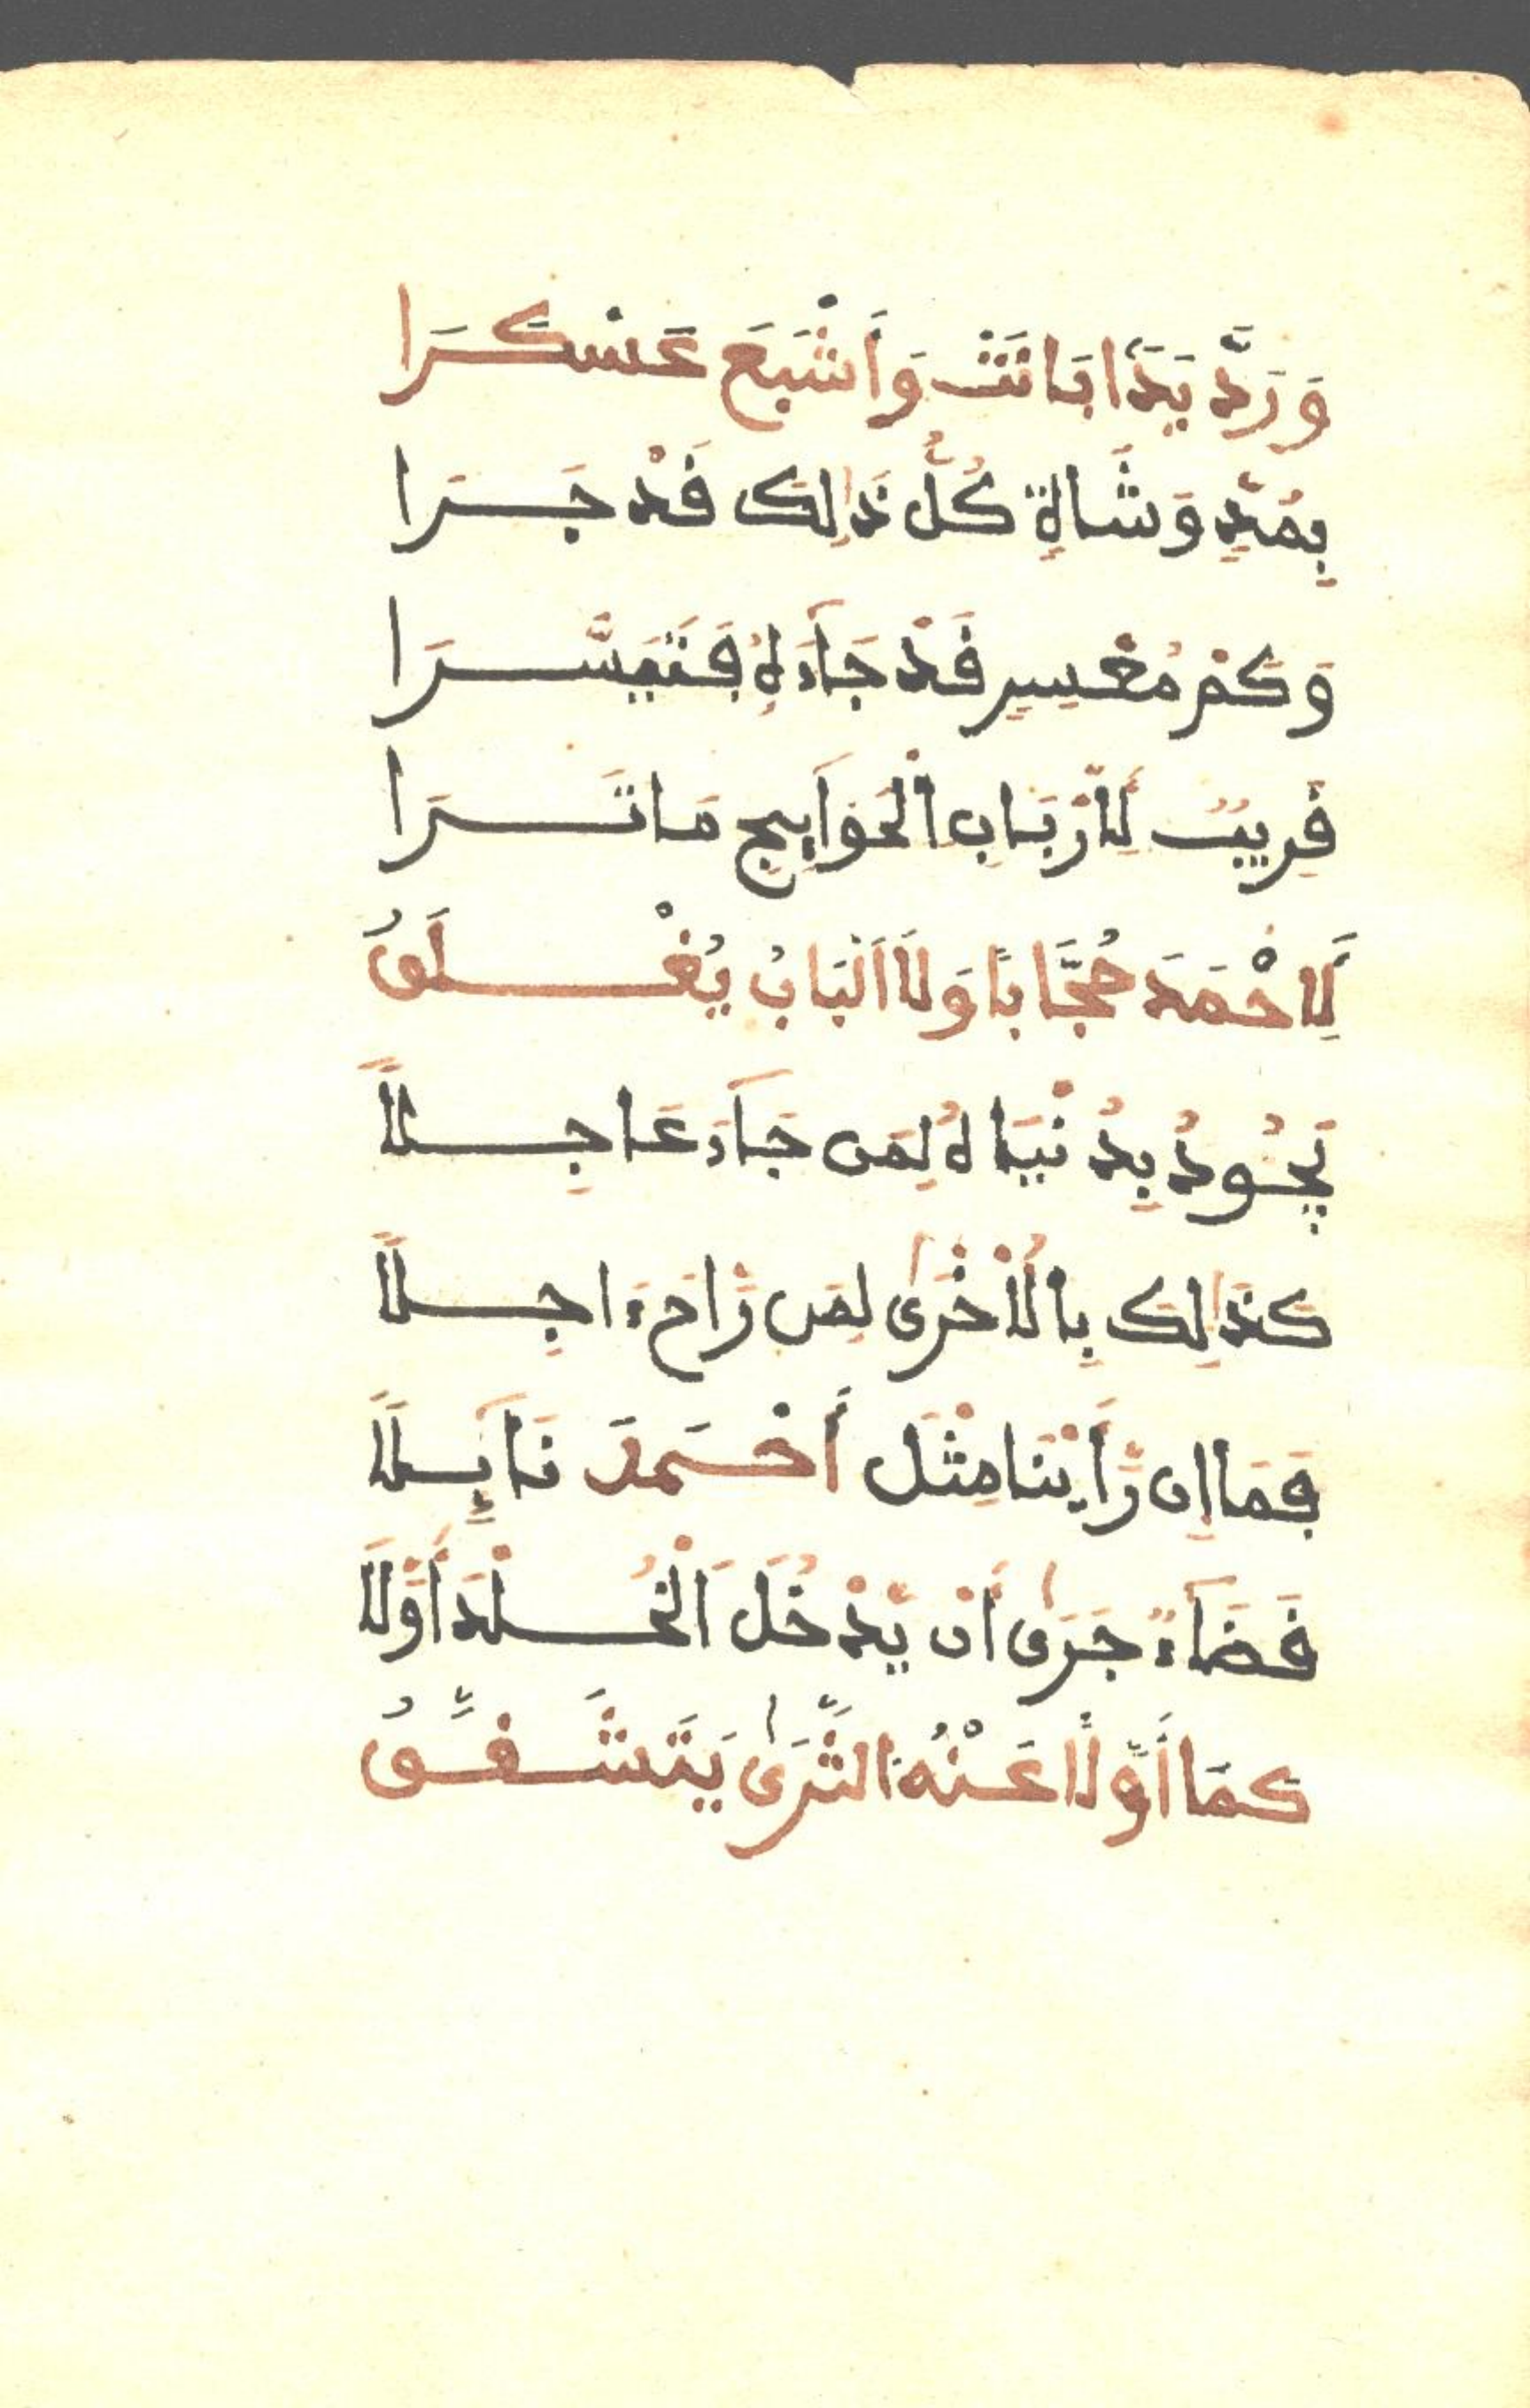 وَرَدَّ يَدًا بَانَتْ وَأَشْبَعَ عَسْكَرَا
بِمُدٍّ وَشَاةٍ كُلُّ ذَٰلِكَ قَدْ جَـــرَا
وَكَمْ مُعْسِرٍ قَدْ جَآءَهُ فَتَيَسَّـــرَا
قَرِيبٌ لِأَرْبَابِ الْحَوَآيِجِ مَا تَـــرَا
لِأَحْمَدَ حُجَّابًا وَلَا الْبَابُ يُغْـــلَقُ
يَجُودُ بِدُنْيَاهُ لِمَن جَآءَ عَاجِـــلًا
كَذَٰلِكَ بِالْأُخْرَىٰ لِمَن رَّاحَ ءَاجِـــلًا
فَمَا إِن رَّأَيْنَا مِثْلَ أَحْـــمَدَ نَآئِـــلًا
قَضَآءً جَرَىٰ أَن يَّدْخُلَ الْخُـــلْدَ أَوَّلَا
كَمَا أَوَّلًا عَنْهُ الثَّرَىٰ يَتَشَـــقَّـــقُ